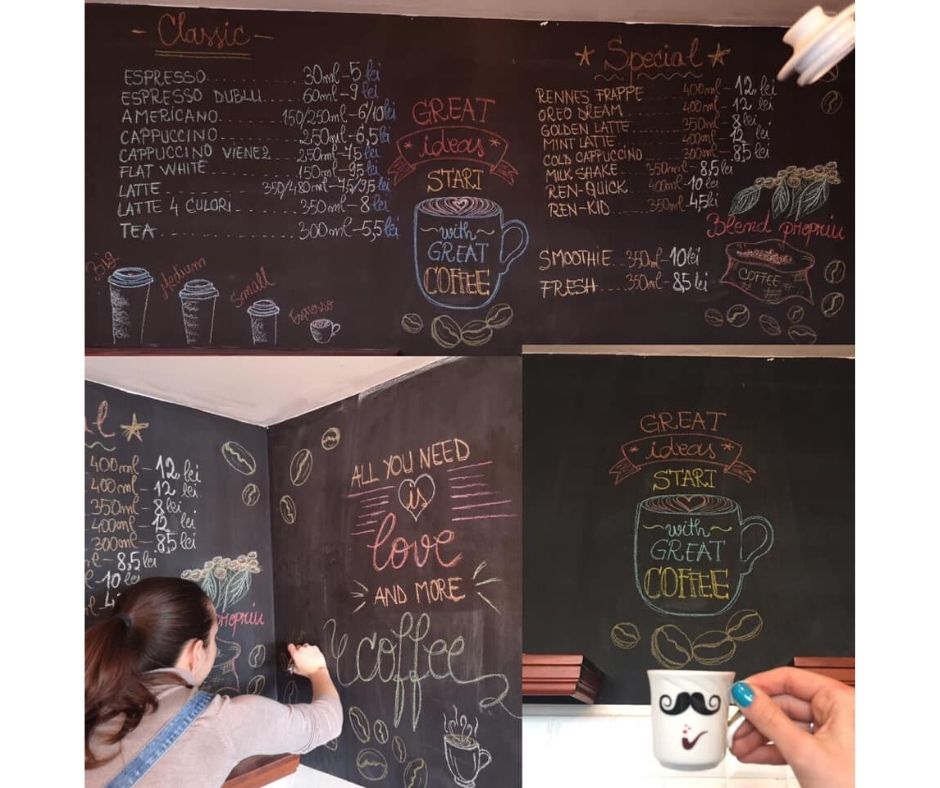 - Classic -
ESPRESSO 30ml-5 lei
ESPRESSO DUBLU 60ml-9 lei
AMERICANO 150/250ml-6/10lei
CAPPUCCINO 250ml-6,5lei
CAPPUCCINO VIENEZ 250ml-7,5 lei
FLAT WHITE 150ml-9,5 lei
LATTE 350/480ml-7,5/9,5 lei
LATTE 4 CULORI 350ml-8 lei
TEA 300ml-5,5 lei
Big
Medium
Small
Espresso
GREAT
ideas
START
with
GREAT
COFFEE
Special
RENNES FRAPPE 400ml-12 lei
OREO DREAM 400ml-12 lei
GOLDEN LATTE 350ml-8 lei
MINT LATTE 400ml-12 lei
COLD CAPPUCCINO 300ml-8,5 lei
MILK SHAKE 350ml-8,5 lei
REN-QUICK 400ml-10 lei
REN-KID 350ml-4,5 lei
SMOOTHIE 350ml-10 lei
FRESH 350ml-8,5 lei
Blend propriu
COFFEE
l
400ml-12 lei
400ml-12 lei
350ml-8 lei
400ml-12 lei
300ml-8,5 lei
ml-8,5 lei
l-10 lei
propriu
ALL YOU NEED
is
love
AND MORE
coffee
GREAT
ideas
START
with
GREAT
COFFEE